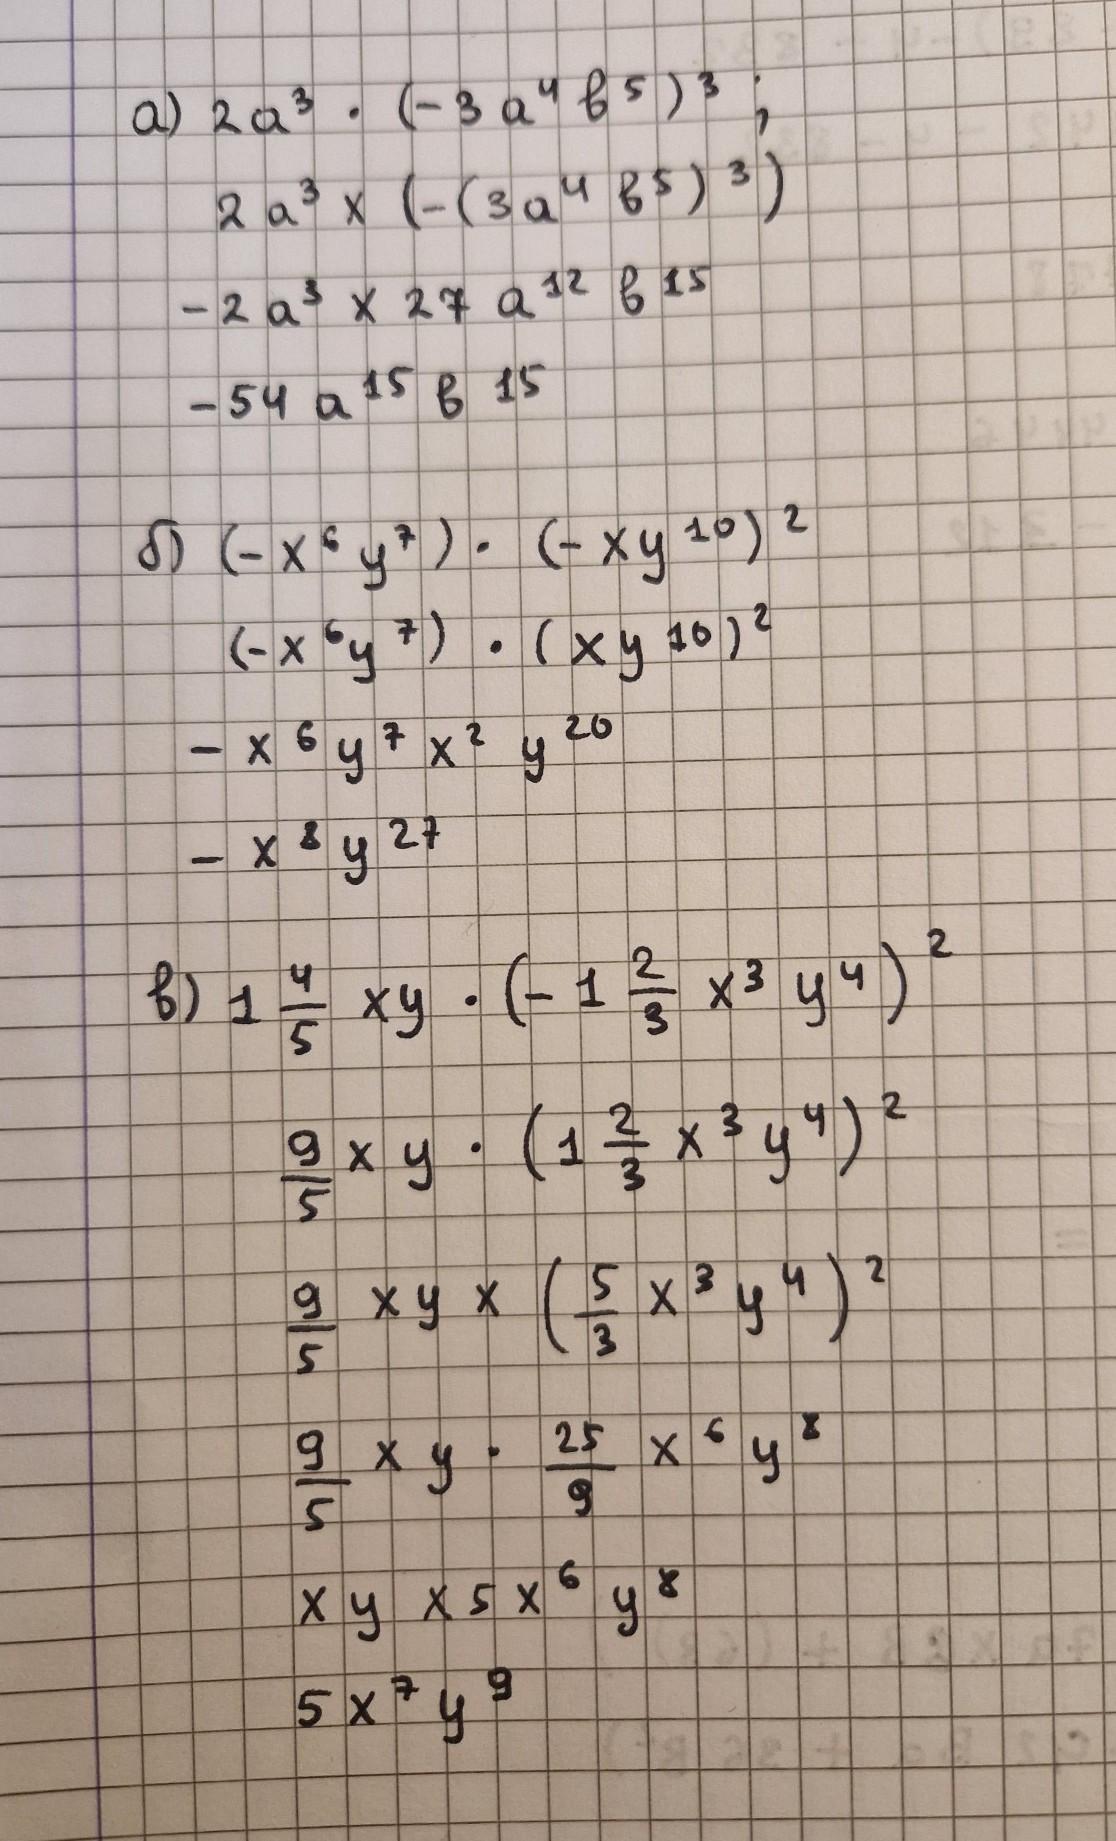 а) 2a³ · (-3a⁴b⁵)³;
2a³ x (-(3a⁴b⁵)³)
-2a³ x 27a¹²b¹⁵
-54a¹⁵b¹⁵
б) (-x⁶y⁷) · (-xy¹⁰)²
(-x⁶y⁷) · (xy¹⁰)²
-x⁶y⁷x²y²⁰
-x⁸y²⁷
в) 1 4/5 xy · (-1 2/3 x³y⁴)²
9/5 xy · (1 2/3 x³y⁴)²
9/5 xy x (5/3 x³y⁴)²
9/5 xy · 25/9 x⁶y⁸
xy x 5x⁶y⁸
5x⁷y⁹